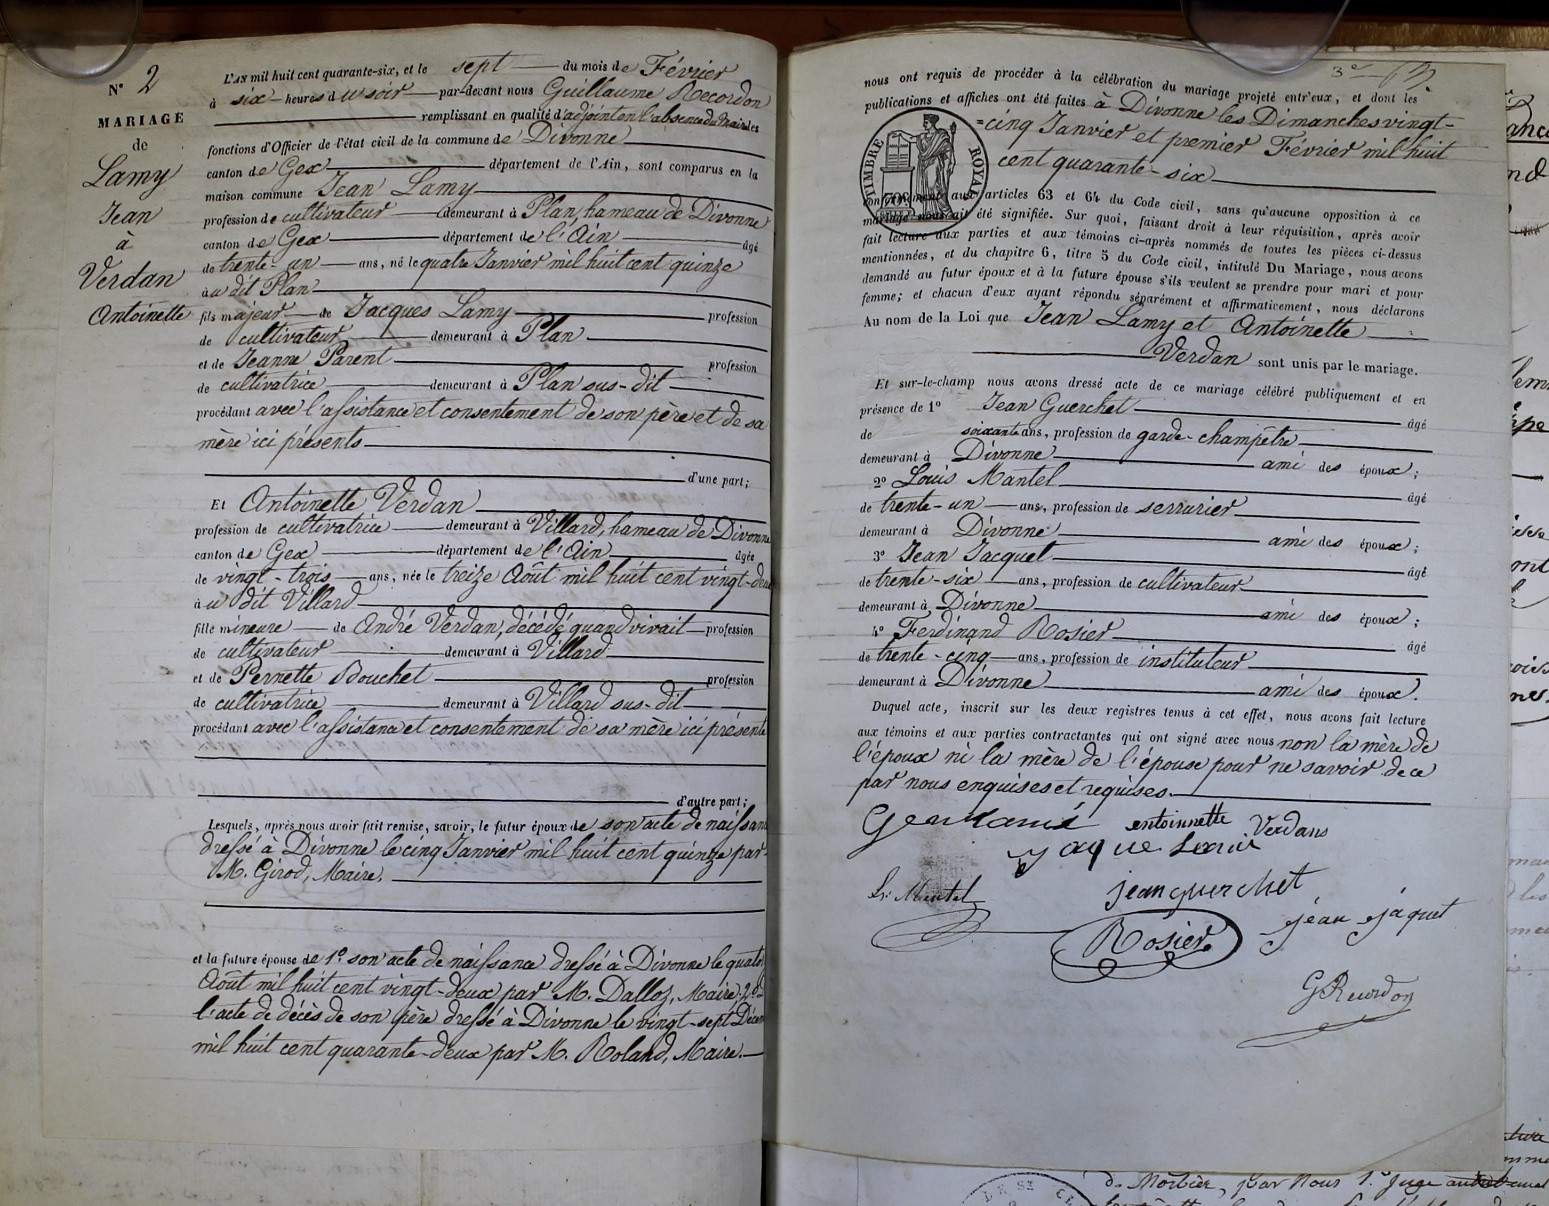 N° 2
MARIAGE
de
Lamy
Jean
à
Verdan
Antoinette
L'AN mil huit cent quarante-six, et le sept du mois de Février
à six heures du soir par-devant nous Guillaume Recordon
remplissant en qualité d'adjoint en l'absence du Maire les
fonctions d'Officier de l'état civil de la commune de Divonne
canton de Gex département de l'Ain, sont comparus en la
maison commune Jean Lamy
profession de cultivateur demeurant à Plan, hameau de Divonne
canton de Gex département de l'Ain âgé
de trente-un ans, né le quatre Janvier mil huit cent quinze
à u dit Plan
fils majeur de Jacques Lamy profession
de cultivateur demeurant à Plan
et de Jeanne Parent profession
de cultivatrice demeurant à Plan sus-dit
procédant avec l'assistance et consentement de son père et de sa
mère ici présents
d'une part;
Et Antoinette Verdan
profession de cultivatrice demeurant à Villard, hameau de Divonne
canton de Gex département de l'Ain âgée
de vingt-trois ans, née le treize Août mil huit cent vingt-deux
à u dit Villard
fille mineure de André Verdan, décédé quand vivait profession
de cultivateur demeurant à Villard
et de Pernette Bouchet profession
de cultivatrice demeurant à Villard sus-dit
procédant avec l'assistance et consentement de sa mère ici présente
d'autre part;
Lesquels, après nous avoir fait remise, savoir, le futur époux de son acte de naissance
dressé à Divonne le cinq Janvier mil huit cent quinze par
M. Girod, Maire.
et la future épouse de 1° son acte de naissance dressé à Divonne le quatorz
Août mil huit cent vingt-deux par M. Dalloz, Maire, 2° d
l'acte de décès de son père dressé à Divonne le vingt-sept Décem
mil huit cent quarante-deux par M. Roland, Maire.
3e
nous ont requis de procéder à la célébration du mariage projeté entr'eux, et dont les
publications et affiches ont été faites à Divonne les Dimanches vingt-
=cinq Janvier et premier Février mil huit
cent quarante-six
TIMBRE ROYAL
conformément aux articles 63 et 64 du Code civil, sans qu'aucune opposition à ce
mariage nous ait été signifiée. Sur quoi, faisant droit à leur réquisition, après avoir
fait lecture aux parties et aux témoins ci-après nommés de toutes les pièces ci-dessus
mentionnées, et du chapitre 6, titre 5 du Code civil, intitulé Du Mariage, nous avons
demandé au futur époux et à la future épouse s'ils veulent se prendre pour mari et pour
femme; et chacun d'eux ayant répondu séparément et affirmativement, nous déclarons
Au nom de la Loi que Jean Lamy et Antoinette
Verdan sont unis par le mariage.
Et sur-le-champ nous avons dressé acte de ce mariage célébré publiquement et en
présence de 1° Jean Guerchet âgé
de soixante ans, profession de garde-champêtre
demeurant à Divonne ami des époux;
2° Louis Mantel âgé
de trente-un ans, profession de serrurier
demeurant à Divonne ami des époux;
3° Jean Jacquet âgé
de trente-six ans, profession de cultivateur
demeurant à Divonne ami des époux;
4° Ferdinand Rosier âgé
de trente-cinq ans, profession de instituteur
demeurant à Divonne ami des époux.
Duquel acte, inscrit sur les deux registres tenus à cet effet, nous avons fait lecture
aux témoins et aux parties contractantes qui ont signé avec nous non la mère de
l'époux ni la mère de l'épouse pour ne savoir de ce
par nous enquises et requises.
entoinnette Verdans
jaque
jean guerchet
Ls. Mantel
jéan jaquet
Rosier
G Recordon
DE St CL
de Morbier, par Nous 1er Juge